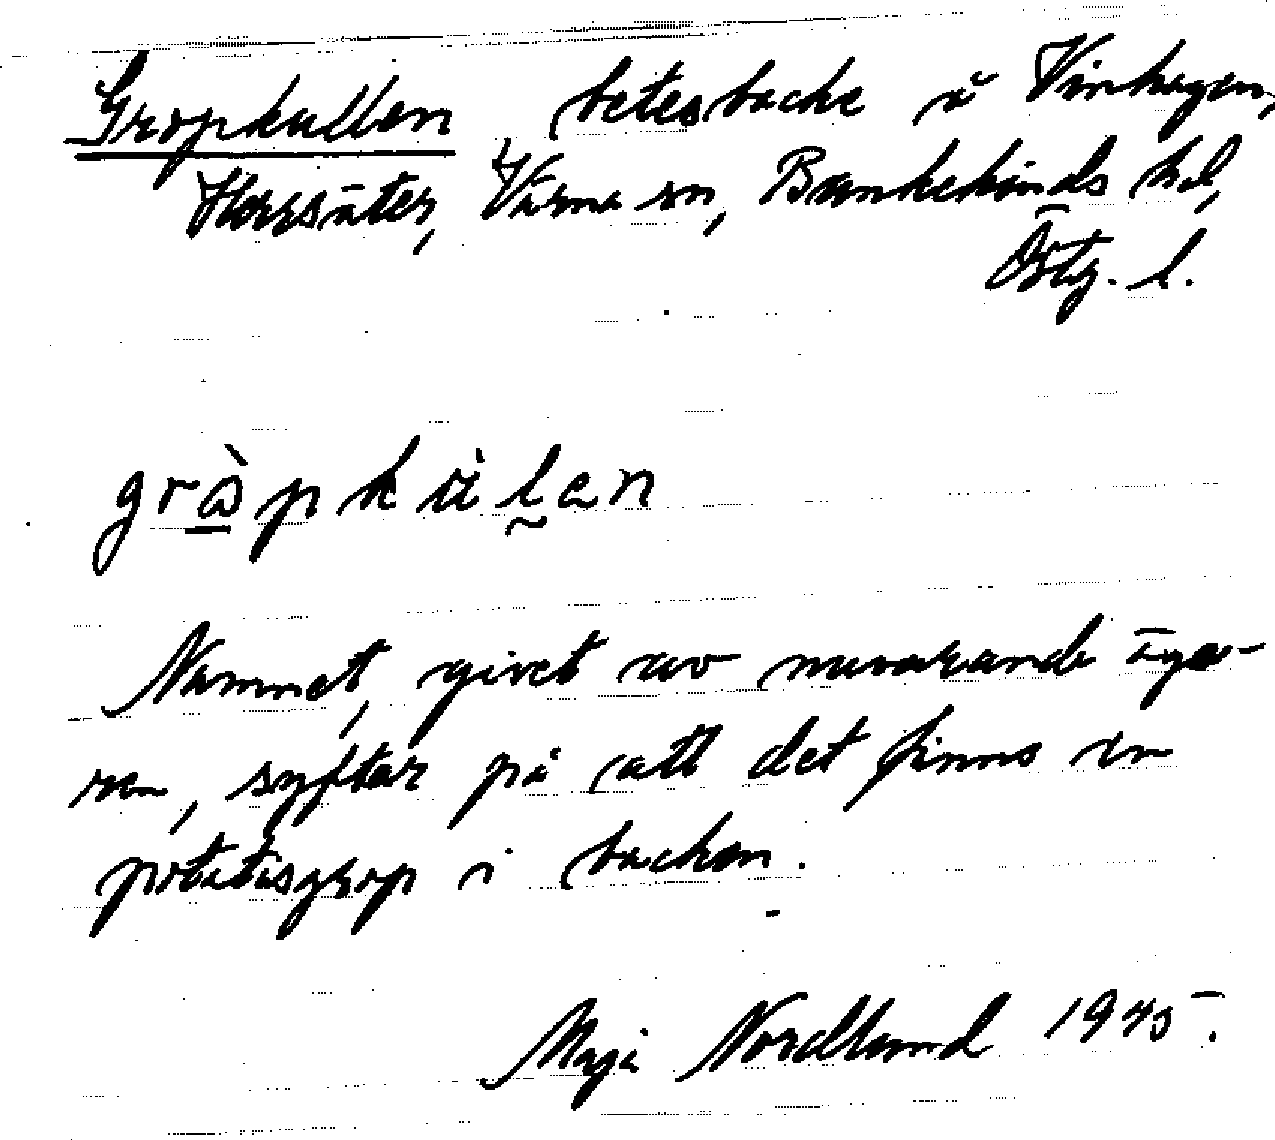 Gropkullen betesbacke å Vinhagen,
Herrsäter, Värna sn, Bankekinds hd,
Östg. l.
grå̀pkùlen
Namnet, givet av nuvarande äga-
ren, syftar på att det finns en
potatisgrop i backen.
Maja Nordlund 1945.